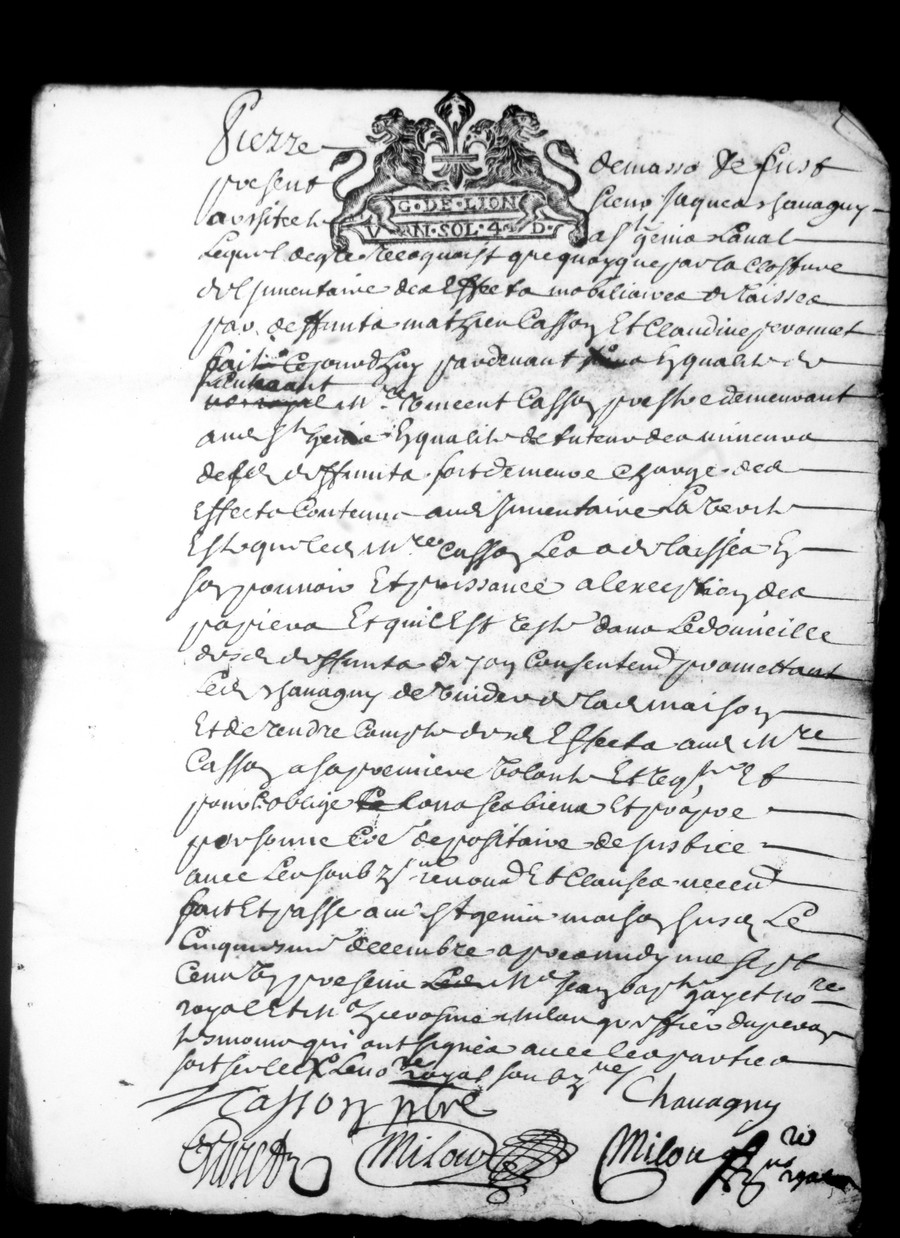 Pierre demasso Je fust
present sieur Jaques Chavagny
G·DE·LION
V N·SOL·4 D·
a St genis Laval
Lequel de gre recognoist que quoyque par la Closture
de Linventaire des Effects mobiliaires delaisses
par deffunts mathieu Casson Et Claudine peronnet
fait Cejourdhuy pardevant En qualite de
Mre Vincent Casson prestre demeurant
aud St genis En qualite de tuteur des mineurs
desd deffunts soit demeure Charge des
Effects Contenus aud Inventaire La verite
Est que led Mre Casson Les a delaisses En
son pouvoir Et puissance a lexception des
papiers Et quil Est reste dans Le domicille
desd deffunts de son Consentemt promettant
Led Chavagny de vuider de lad maison
Et de rendre Compte desd Effects aud Mre
Casson a sa premiere volonte Et reqte Et
pour Coblige tous ses biens Et propre
personne Coe depositaire de Justice
avec Les soubzns renond Et Clauses necess
fait Et passe aud St genis maison susd Le
Cinquiesme decembre apres midy mil sept
Cent presens Me Jean bapte gayet nore
royal Et Me hierosme milon greffier du
tesmoins qui ont signes avec les parties
royal soubzne
Casson pbre Chavagny
Milon Milon